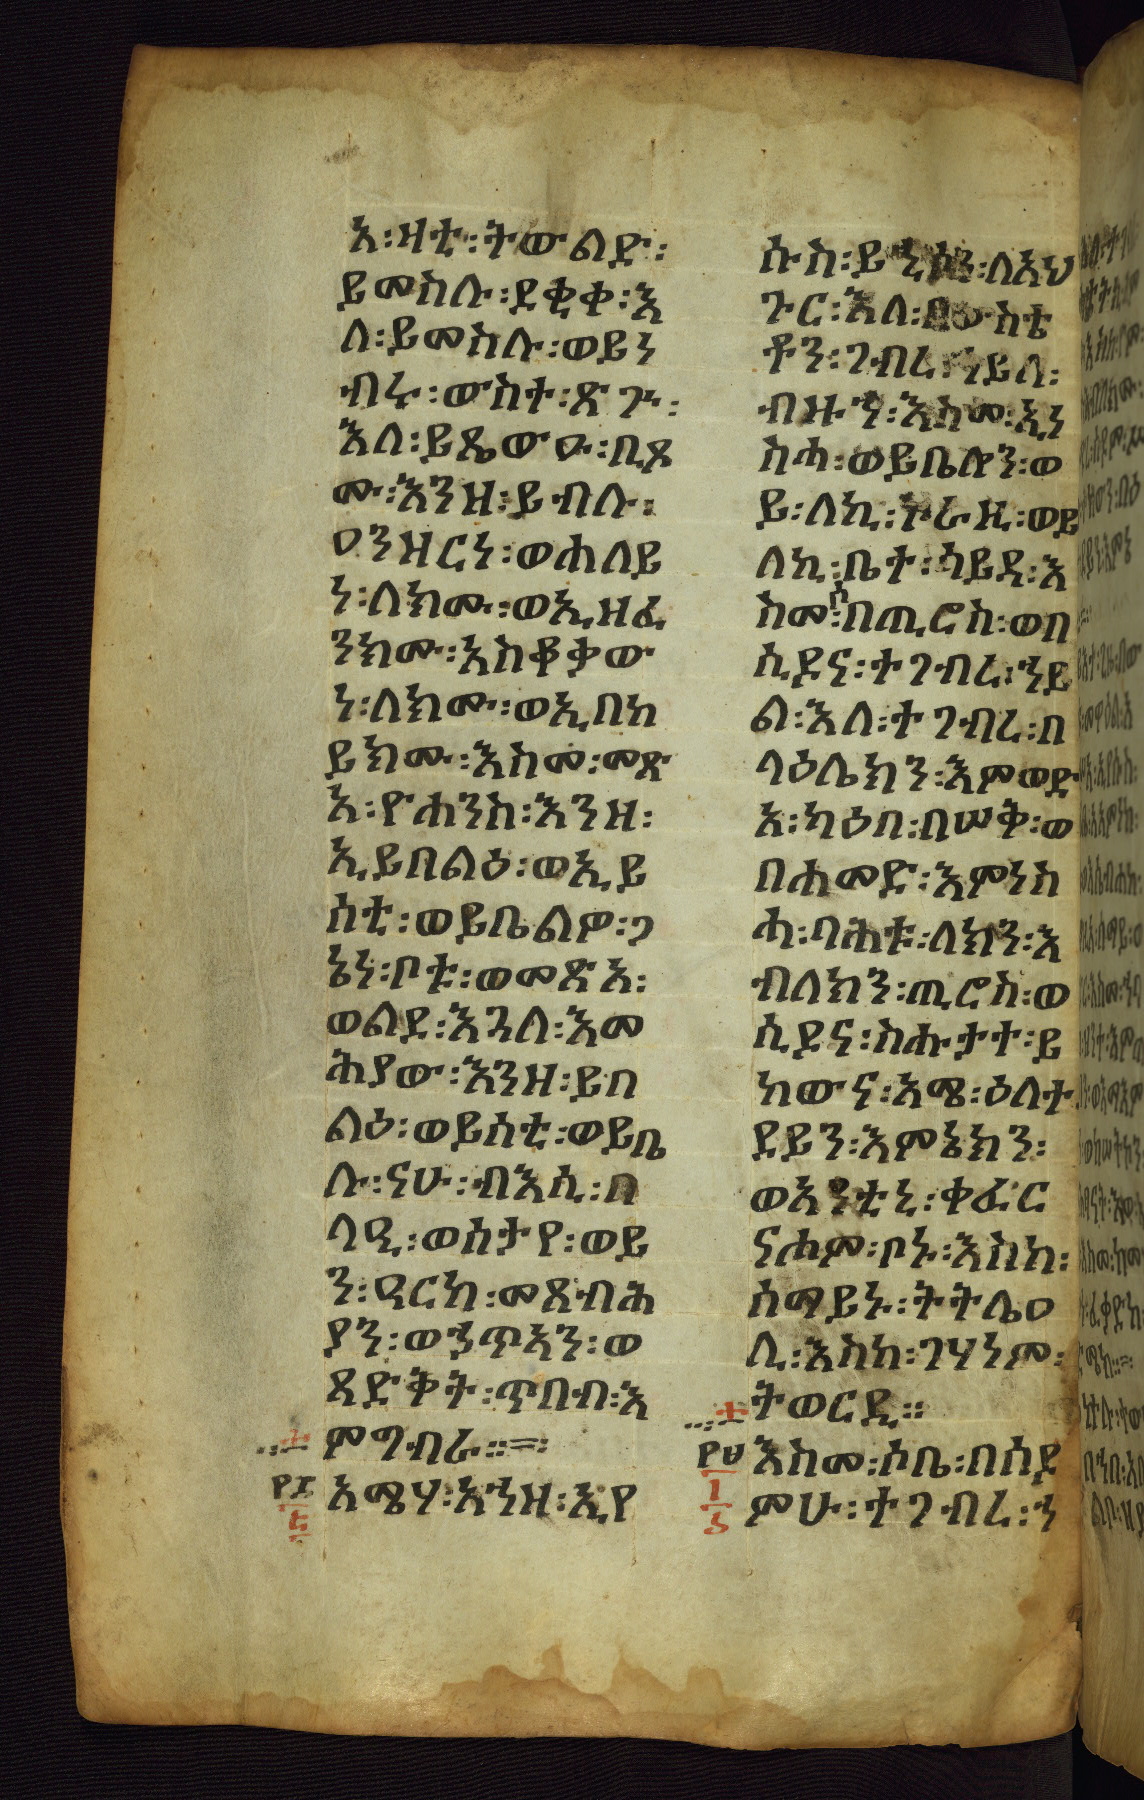 እ፡ዛቲ፡ትውልድ፡
ይመስሉ፡ደቂቀ፡እ
ለ፡ይመስሉ፡ወይነ
ብሩ፡ውስተ፡ጽጉ፡
እለ፡ይጼውዑ፡ቢጾ
ሙ፡እንዘ፡ይብሉ፡
ዐንዘርነ፡ወሐለይ
ነ፡ለክሙ፡ወኢዘፈ
ንክሙ፡አስቆቃው
ነ፡ለክሙ፡ወኢበከ
ይክሙ፡እስመ፡መጽ
አ፡ዮሐንስ፡እንዘ፡
ኢይበልዕ፡ወኢይ
ሰቲ፡ወይቤልዎ፡ጋ
ኔነ፡ቦቱ፡ወመጽአ፡
ወልደ፡እጓለ፡እመ
ሕያው፡እንዘ፡ይበ
ልዕ፡ወይሰቲ፡ወይቤ
ሉ፡ናሁ፡ብእሲ፡በ
ላዒ፡ወሰታየ፡ወይ
ን፡ዓርከ፡መጸብሕ
ያን፡ወኃጥኣን፡ወ
ጸድቅት፡ጥበብ፡እ
ምግብራ፡፡
፲፯
፭
አሜሃ፡አኀዘ፡ኢየ
ሱስ፡ይኂሶን፡ለአህ
ጉር፡እለ፡በውስቴ
ቶን፡ገብረ፡ኀይለ፡
ብዙኀ፡እስመ፡ኢነ
ስሓ፡ወይቤሎን፡ወ
ይ፡ለኪ፡ኮራዚ፡ወይ
ለኪ፡ቤተ፡ሳይዳ፡እ
ስመ፡ሶ፡በጢሮስ፡ወበ
ሲዶና፡ተገብረ፡ኀይ
ል፡እለ፡ተገብረ፡በ
ላዕሌክን፡እምወድ
አ፡ካዕበ፡በሠቅ፡ወ
በሐመድ፡እምነስ
ሓ፡ባሕቱ፡ለክን፡እ
ብለክን፡ጢሮስ፡ወ
ሲዶና፡ስሑታተ፡ይ
ከውና፡አሜ፡ዕለተ
ደይን፡እምኔክን፡
ወአንቲኒ፡ቀፈር
ናሐም፡ቦኑ፡እስከ፡
ሰማይኑ፡ትትሌዐ
ሊ፡እስከ፡ገሃነም፡
ትወርዲ፡፡
፲፰
እስመ፡ሶቤ፡በሰዶ
ምሁ፡ተገብረ፡ኀ